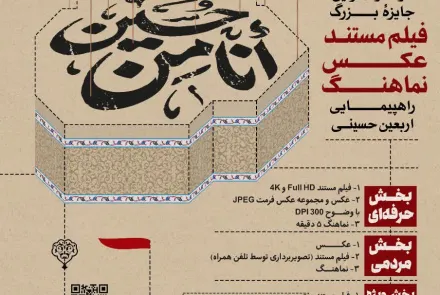 جایزهٔ بزرگ
فیلم مستند
عکس
نماهنگ
راهپیمایی
اربعین حسینی
أنا من حسین
بخش
حرفه‌ای
۱- فیلم مستند Full HD و 4K
۲- عکس و مجموعه عکس فرمت JPEG
با وضوح 300 DPI
۳- نماهنگ ۵ دقیقه
بخش
مردمی
۱- عکس
۲- فیلم مستند (تصویربرداری توسط تلفن همراه)
۳- نماهنگ
بخش ویژه